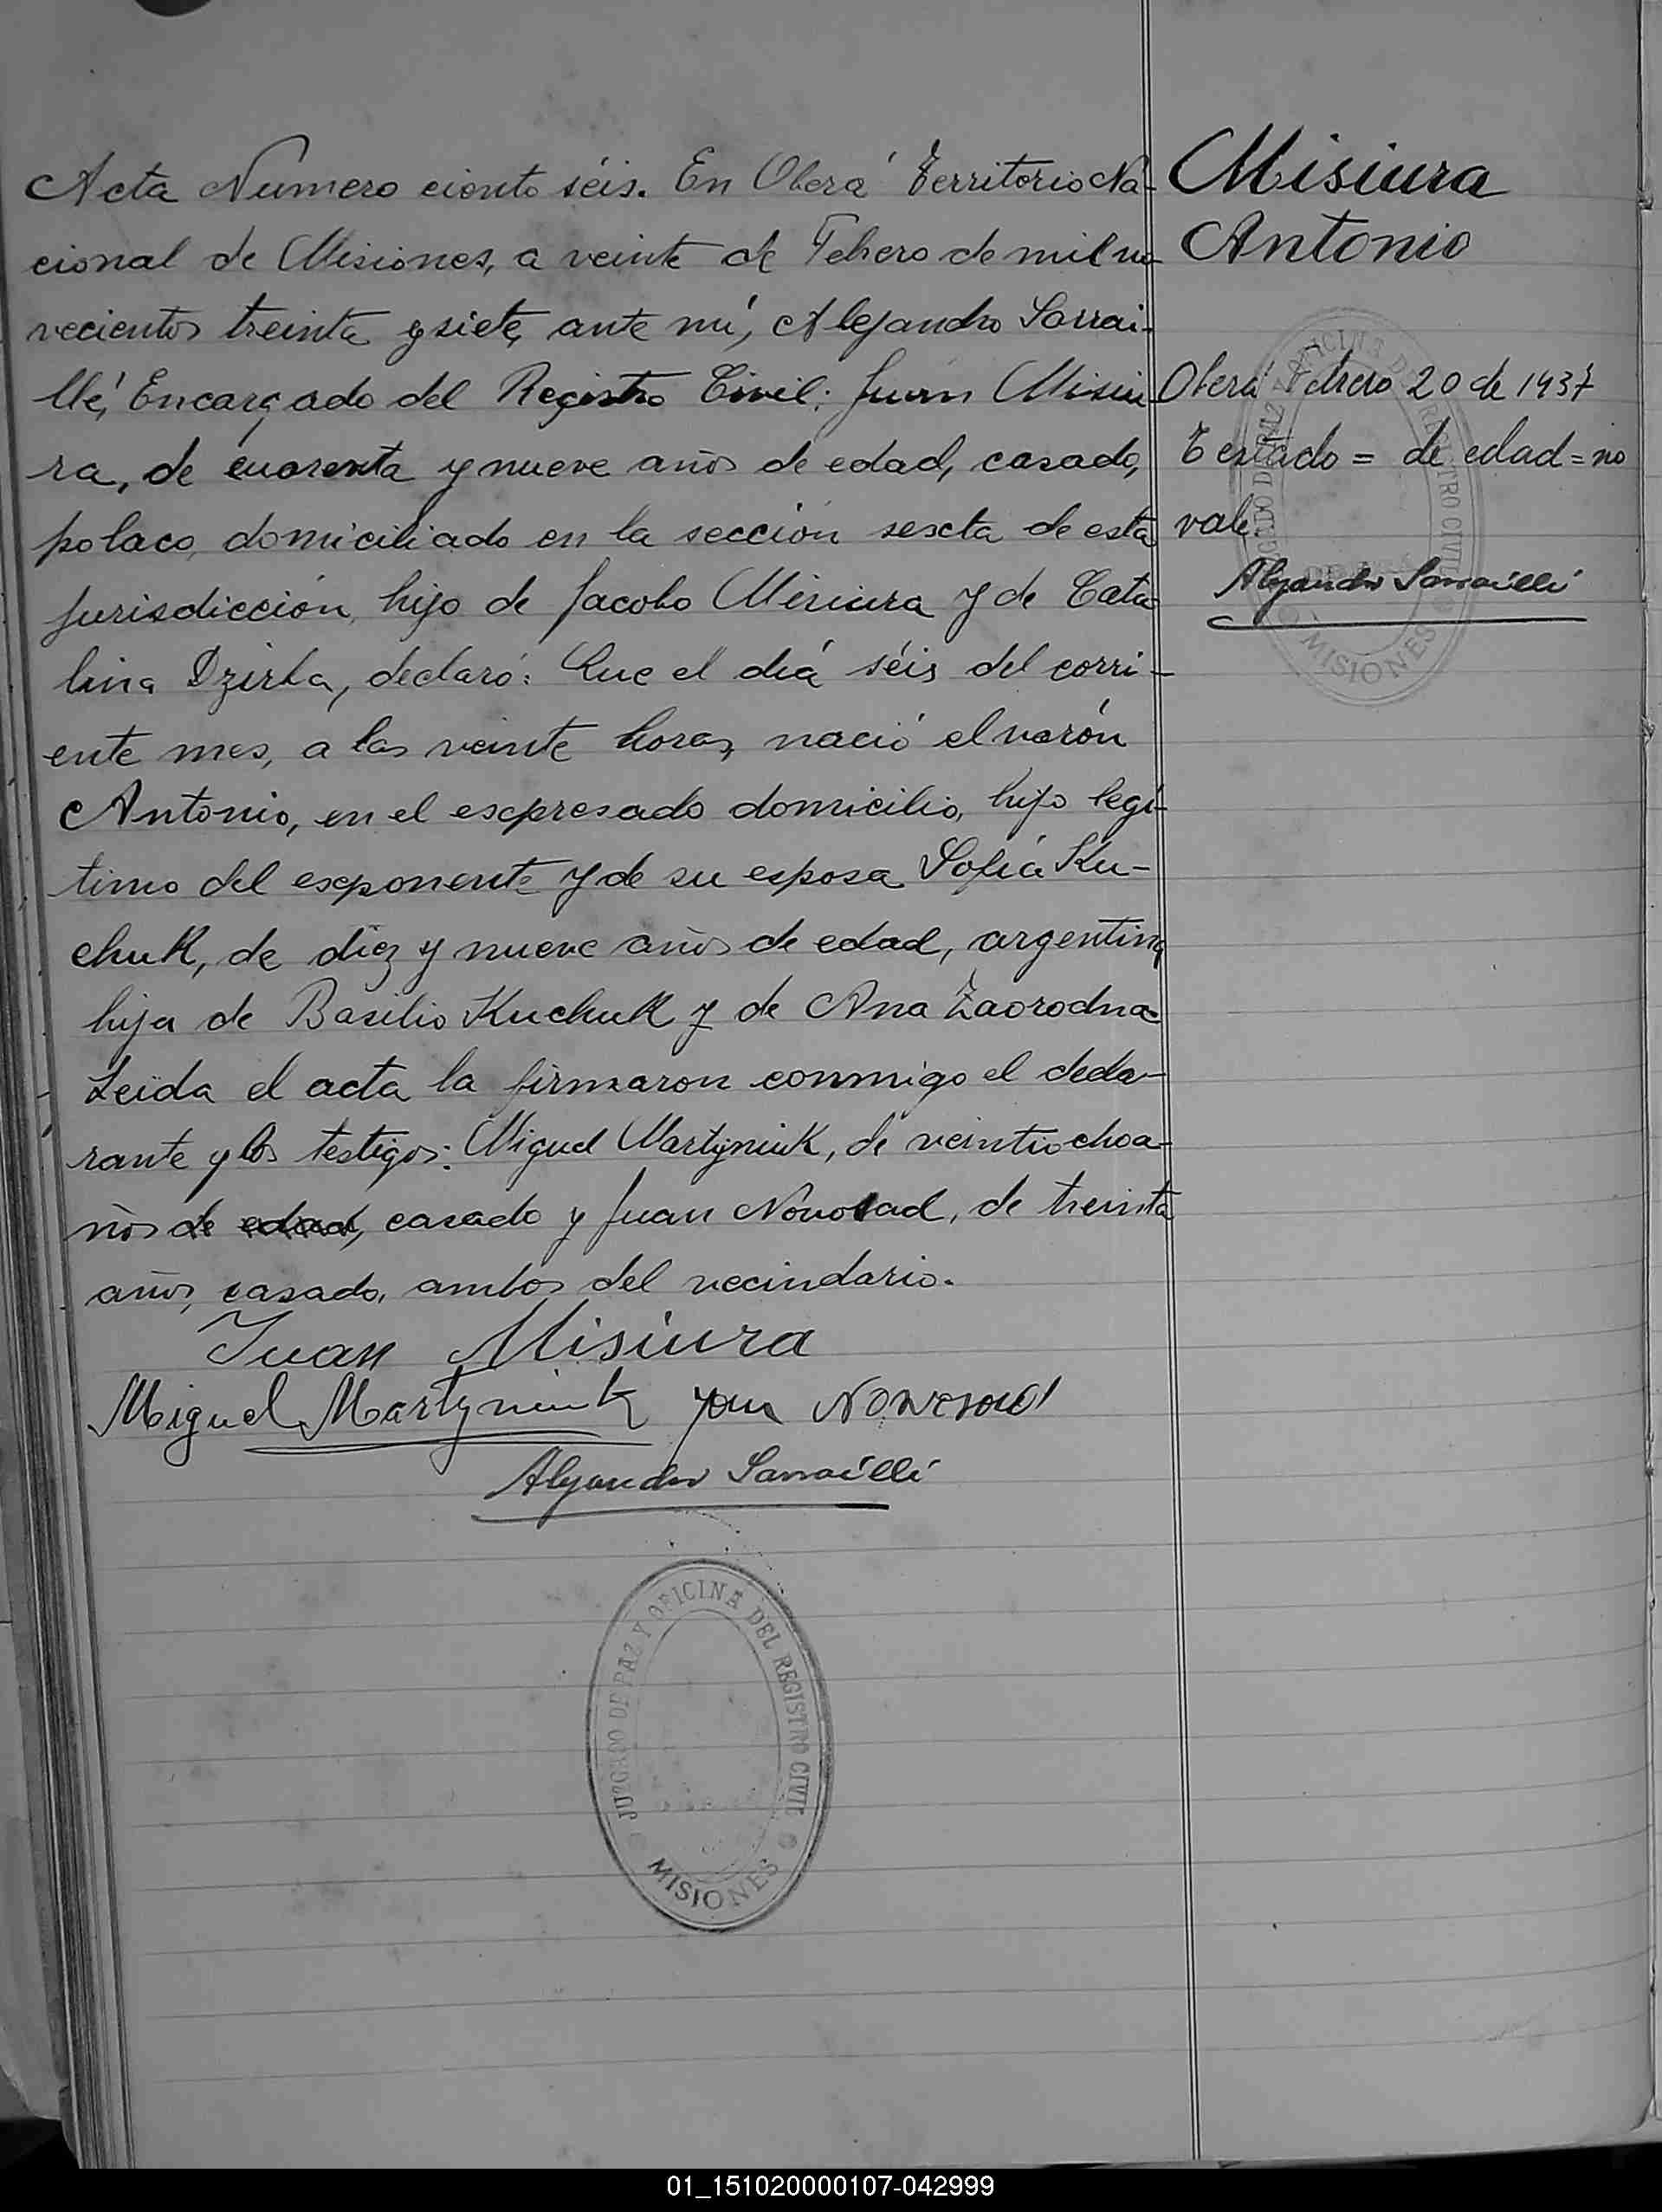 Acta Numero ciento séis. En Oberá Territorio Na-
cional de Misiones, a veinte de Febrero de mil no-
vecientos treinta y siete, ante mi, Alejandro Sarrai-
llé, Encargado del Registro Civil: Juan Misiu
ra, de cuarenta y nueve años de edad, casado,
polaco, domiciliado en la sección sexta de esta
jurisdicción, hijo de Jacobo Misiura y de Cata
lina Dzirba, declaró: Que el diá séis del corri-
ente mes, a las veinte horas, nació el varón
Antonio, en el expresado domicilio, hijo legi-
timo del exponente y de su esposa Sofia Ku-
chuk, de diez y nueve años de edad, argentina
hija de Basilio Kuchuk y de Ana Zaorodna
Leida el acta la firmaron conmigo el decla-
rante y los testigos: Miguel Martyniuk, de veintiocho a-
ños de edad, casado y Juan Novosad, de treinta
años, casado, ambos del vecindario.
Juan Misiura
Miguel Martyniuk Juan
Alejandro Sarraillé
JUZGADO DE PAZ Y OFICINA DEL REGISTRO CIVIL
MISIONES
Misiura
Antonio
Oberá Febrero 20 de 1937
Testado = de edad = no
vale.
Alejandro Sarraillé
JUZGADO DE PAZ Y OFICINA DEL REGISTRO CIVIL
MISIONES
01_151020000107-042999